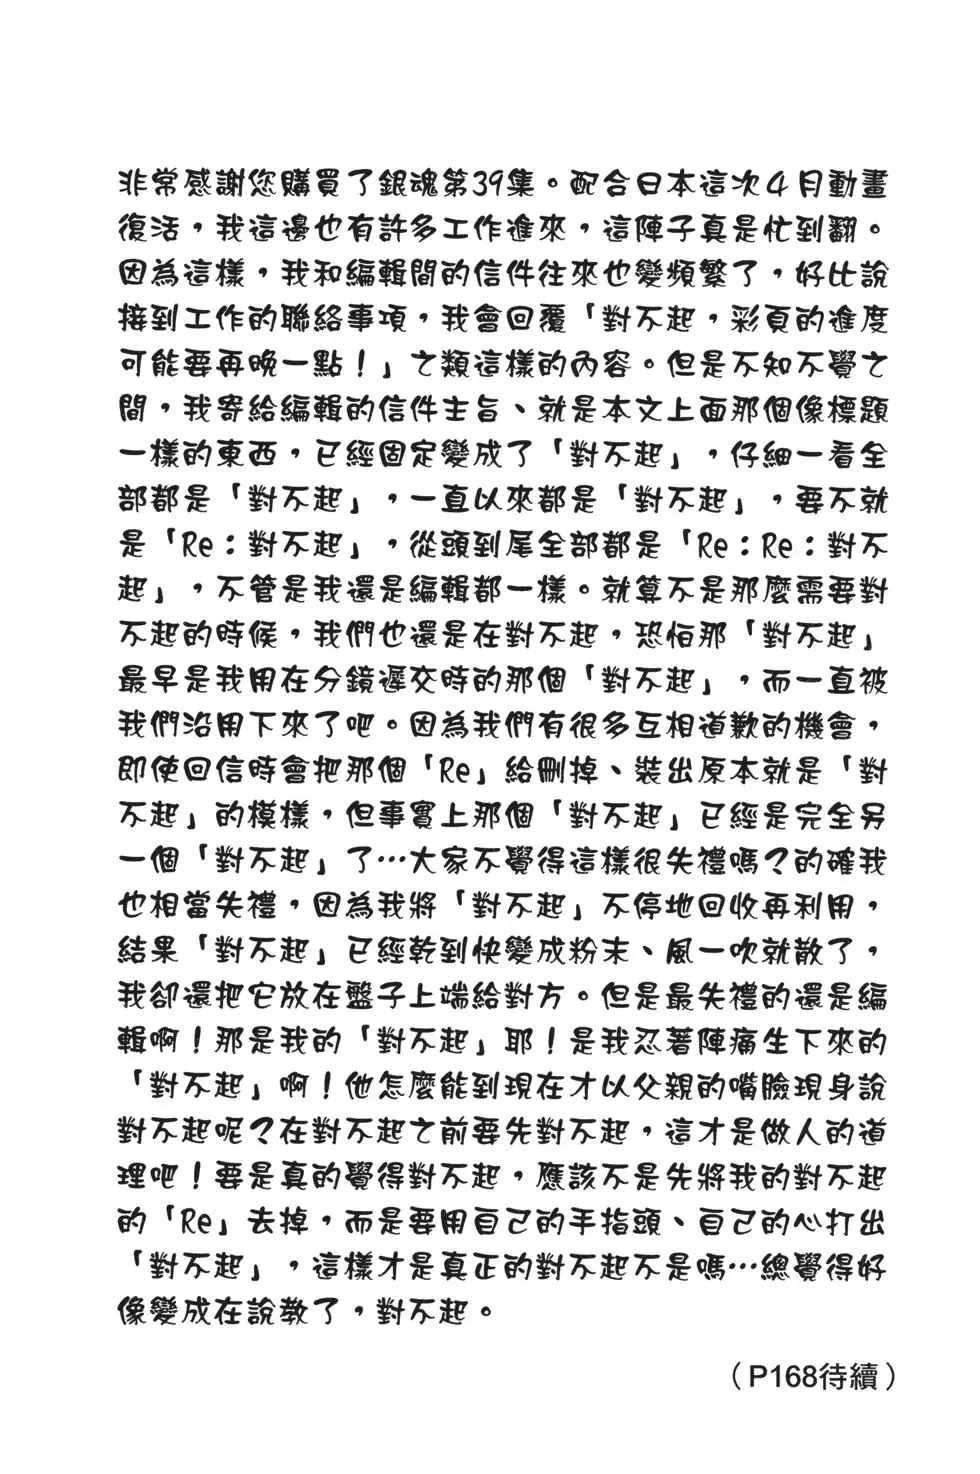 非常感謝您購買了銀魂第39集。配合日本這次4月動畫
復活，我這邊也有許多工作進來，這陣子真是忙到翻。
因為這樣，我和編輯間的信件往來也變頻繁了，好比說
接到工作的聯絡事項，我會回覆「對不起，彩頁的進度
可能要再晚一點！」之類這樣的內容。但是不知不覺之
間，我寄給編輯的信件主旨、就是本文上面那個像標題
一樣的東西，已經固定變成了「對不起」，仔細一看全
部都是「對不起」，一直以來都是「對不起」，要不就
是「Re：對不起」，從頭到尾全部都是「Re：Re：對不
起」，不管是我還是編輯都一樣。就算不是那麼需要對
不起的時候，我們也還是在對不起，恐怕那「對不起」
最早是我用在分鏡遲交時的那個「對不起」，而一直被
我們沿用下來了吧。因為我們有很多互相道歉的機會，
即使回信時會把那個「Re」給刪掉、裝出原本就是「對
不起」的模樣，但事實上那個「對不起」已經是完全另
一個「對不起」了…大家不覺得這樣很失禮嗎？的確我
也相當失禮，因為我將「對不起」不停地回收再利用，
結果「對不起」已經乾到快變成粉末、風一吹就散了，
我卻還把它放在盤子上端給對方。但是最失禮的還是編
輯啊！那是我的「對不起」耶！是我忍著陣痛生下來的
「對不起」啊！他怎麼能到現在才以父親的嘴臉現身說
對不起呢？在對不起之前要先對不起，這才是做人的道
理吧！要是真的覺得對不起，應該不是先將我的對不起
的「Re」去掉，而是要用自己的手指頭、自己的心打出
「對不起」，這樣才是真正的對不起不是嗎…總覺得好
像變成在說教了，對不起。
（P168待續）